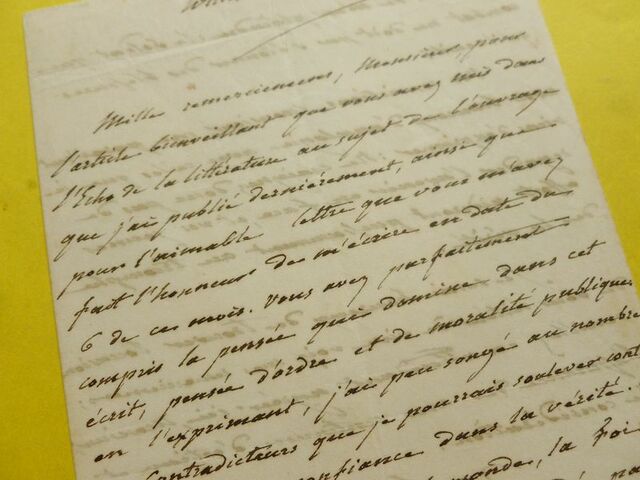 Mille remerciemens, Monsieur, pour
l'article bienveillant que vous avez mis dans
l'Echo de la littérature au sujet de l'ouvrage
que j'ai publié dernièrement, ainsi que
pour l'aimable lettre que vous m'avez
fait l'honneur de m'écrire en date du
6 de ce mois. vous avez parfaitement
compris la pensée qui domine dans cet
écrit, pensée d'ordre et de moralité publique,
en l'exprimant, j'ai peu songé au nombre
contradicteurs que je pourrais soulever cont
confiance dans la vérité.
monde, la Foi